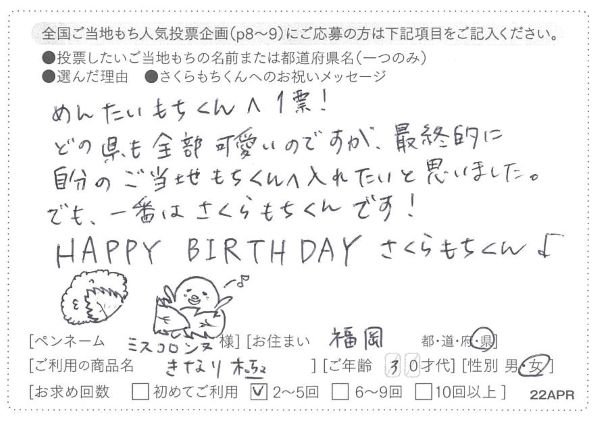 全国ご当地もち人気投票企画(p8〜9)にご応募の方は下記項目をご記入ください。
●投票したいご当地もちの名前または都道府県名(一つのみ)
●選んだ理由 ●さくらもちくんへのお祝いメッセージ
めんたいもちくんへ1票!
どの県も全部可愛いのですが、最終的に
自分のご当地もちくんへ入れたいと思いました。
でも、一番はさくらもちくんです!
HAPPY BIRTHDAY さくらもちくん♪
[ペンネーム ミスコロンヌ 様] [お住まい 福岡 都・道・府・県]
[ご利用の商品名 きなり ] [ご年齢 30才代] [性別 男・女]
[お求め回数 □初めてご利用 ☑2〜5回 □6〜9回 □10回以上] 22APR